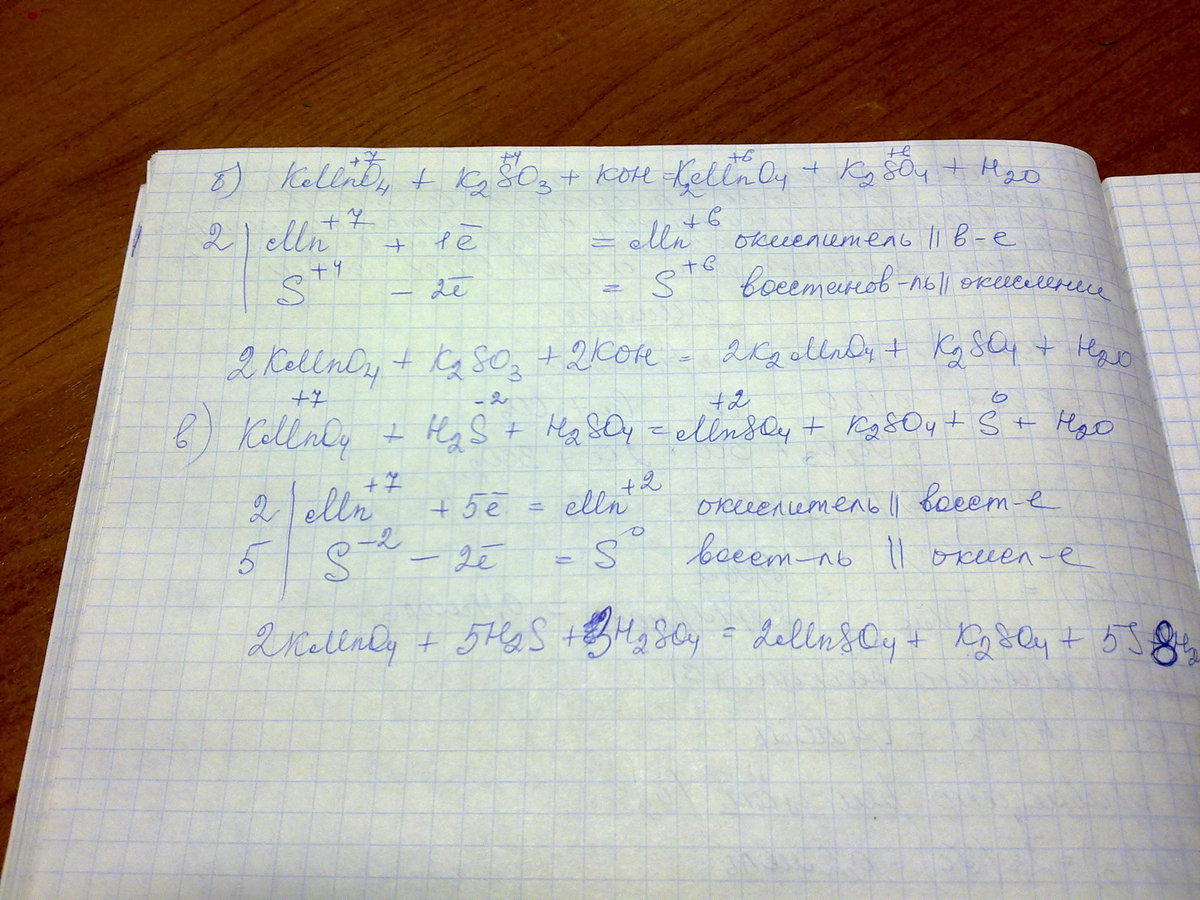 б) KMnO₄ + K₂SO₃ + KOH = K₂MnO₄ + K₂SO₄ + H₂O
+7 +4 +6 +6
2 | Mn⁺⁷ + 1ē = Mn⁺⁶ окислитель || в-е
1 | S⁺⁴ - 2ē = S⁺⁶ восстанов-ль || окисление
2KMnO₄ + K₂SO₃ + 2KOH = 2K₂MnO₄ + K₂SO₄ + H₂O
+7 -2 +2 0
в) KMnO₄ + H₂S + H₂SO₄ = MnSO₄ + K₂SO₄ + S + H₂O
2 | Mn⁺⁷ + 5ē = Mn⁺² окислитель || восст-е
5 | S⁻² - 2ē = S⁰ восст-ль || окисл-е
2KMnO₄ + 5H₂S + 3H₂SO₄ = 2MnSO₄ + K₂SO₄ + 5S + 8H₂